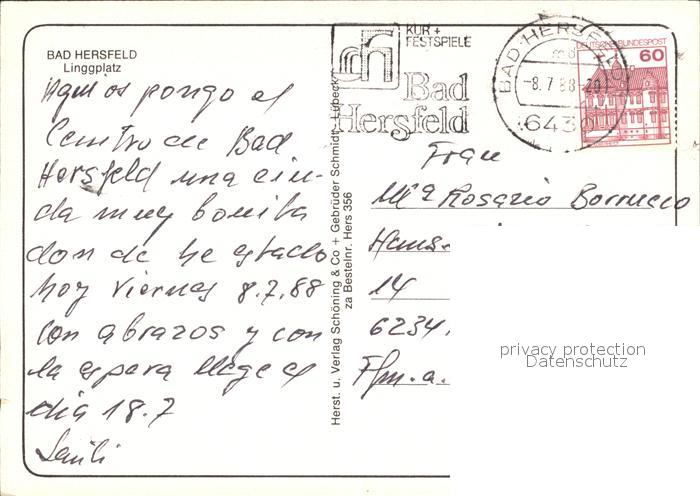 BAD HERSFELD
Linggplatz
Aqui os pongo el
Centro de Bad
Hersfeld una ciu-
da muy bonita
don de he estado
hoy Viernes 8.7.88
con abrazos y con
la espera llege el
dia 18.7
Herst. u. Verlag Schöning & Co + Gebrüder Schmidt, Lübeck
za Bestelnr. Hers 356
KUR +
FESTSPIELE
Bad
Hersfeld
BAD HERSFELD
-8.7.88-20
6430
DEUTSCHE BUNDESPOST
60
Frau
Mª Rosario Borrueco
14
6234
Ffm. a.
privacy protection
Datenschutz